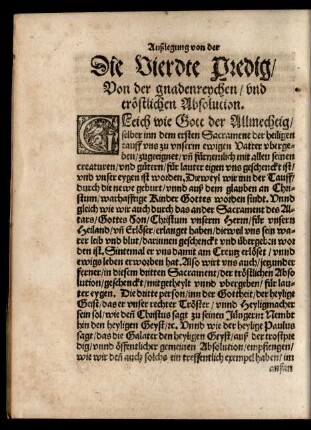 Außlegung von der
Die Vierdte Predig/
Von der gnadenreychen/ vnd
tröstlichen Absolution.
GLeich wie Gott der Allmechtig/
selber inn dem ersten Sacrament der heiligen
tauff vns zu vnserm ewigen Vatter vberge-
ben/ zugeeignet/ vñ fürnemlich mit allen seinen
creaturen/ vnd gütern/ für lauter eigen vns geschenckt ist/
vnd vnser eygen ist worden, Deweyl wir inn der Tauff/
durch die newe geburt/ vnnd auß dem glauben an Chri-
stum/ warhafftige Kinder Gottes worden sindt. Vnnd
gleich wie wir auch durch das ander Sacrament des Al-
tars/ Gottes Son/ Christum vnsern Herrn/ für vnsern
Heiland/ vñ Erlöser/ erlanget haben/ dieweil vns sein wa-
rer leib vnd blut/ darinnen geschenckt vnd vbergeben wor
den ist. Sintemal er vns damit am Creutz erlöset / vnnd
ewigs leben erworben hat. Also wirt vns auch/ jetzunder
ferner/ in disem dritten Sacrament/ der tröstlichen Abso
lution/ geschenckt/ mitgetheylt vnnd vbergeben/ für lau-
ter eygen. Die dritte person/ inn der Gottheit/ der heylige
Geist/ das er vnser rechter Tröster/ vnnd Heyligmacher
sein sol/ wie deñ Christus sagt zu seinen Jüngern: Nembt
hin den heyligen Geyst/ &c. Vnnd wie der heylige Paulus
sage/ das die Galater den heyligen Geyst/ auß der trostpre
dig/ vnnd öffentlicher gemeinen Absolution/ empfiengen/
wie wir deñ auch solchs ein treffentlich exempel haben/ im
anfan